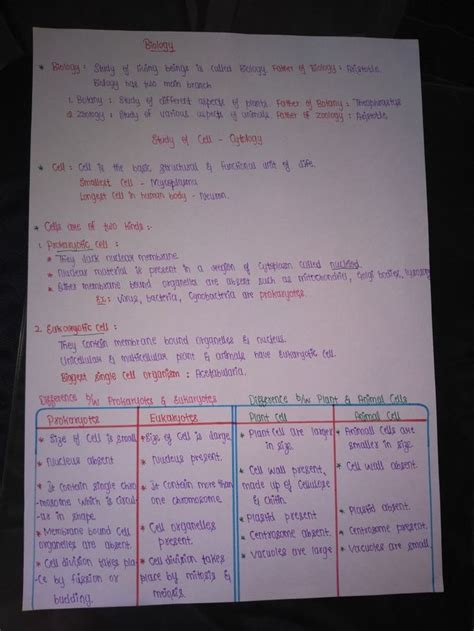 Biology
* Biology : Study of living beings is called Biology. Father of Biology : Aristotle.
Biology has two main branch
1. Botany : Study of different aspects of plants. Father of Botany : Theophrastus
2. Zoology : Study of various aspects of animals. Father of Zoology : Aristotle.
Study of Cell - Cytology
* Cell : Cell is the basic structural & functional unit of life.
Smallest Cell - Mycoplasma
Longest Cell in human body - Neuron.
* Cells are of two kinds :-
1. Prokaryotic Cell :
* They lack nuclear membrane.
* Nuclear material is present in a region of Cytoplasm called nucleoid.
* Other membrane bound organelles are absent such as mitochondria, Golgi bodies,
Ex : virus, bacteria, Cynobacteria are prokaryotes.
2. Eukaryotic Cell :
They contain membrane bound organelles & nucleus.
Unicellular & multicellular plant & animals have Eukaryotic Cell.
Biggest single cell organism : Acetabularia.
Difference b/w Prokaryotes & Eukaryotes
Prokaryotes
Eukaryotes
* Size of Cell is small
* Size of Cell is large
* Nucleus absent
* Nucleus present.
* It contain single chro
-mosome which is circul
-ar in shape
* It contain more than
one chromosome.
* Membrane bound Cell
organelles are absent.
* Cell organelles
present.
* Cell division takes pla-
ce by fission or
budding.
* Cell division takes
place by mitosis &
meiosis
Difference b/w Plant & Animal Cells
Plant Cell
Animal Cell
* Plant Cell are larger
in size.
* Animal Cells are
smaller in size.
* Cell wall present,
made up of Cellulose
& chitin
* Cell wall absent
* Plastid present
* Plastid absent.
* Centrosome absent.
* Centrosome present.
* Vacuoles are large
* Vacuoles are small